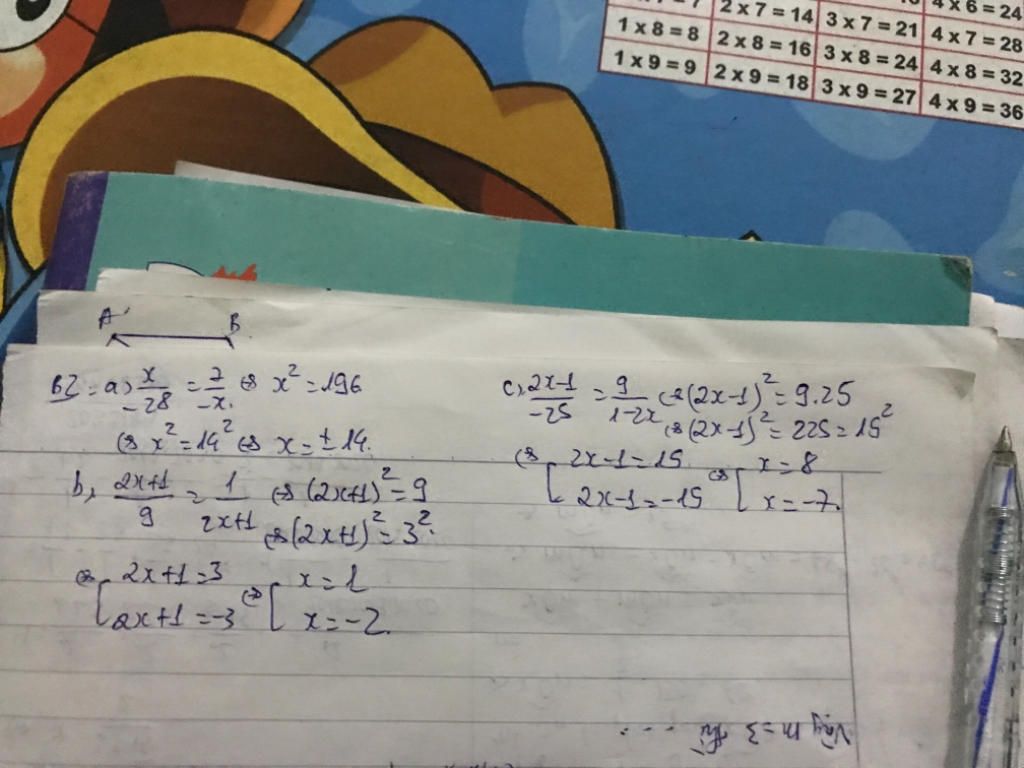 4 x 6 = 24
2 x 7 = 14 3 x 7 = 21 4 x 7 = 28
1 x 8 = 8 2 x 8 = 16 3 x 8 = 24 4 x 8 = 32
1 x 9 = 9 2 x 9 = 18 3 x 9 = 27 4 x 9 = 36
A B
B2: a) x/-28 = 7/-x ⇔ x² = 196
⇔ x² = 14² ⇔ x = ± 14.
b, 2x+1/9 = 1/2x+1 ⇔ (2x+1)² = 9
⇔ (2x+1)² = 3².
⇔ [ 2x+1 = 3 ⇔ [ x = 1
2x+1 = -3 x = -2.
c, 2x-1/-25 = 9/1-2x ⇔ (2x-1)² = 9.25
⇔ (2x-1)² = 225 = 15²
⇔ [ 2x-1 = 15 ⇔ [ x = 8
2x-1 = -15 x = -7.
Vậy m = 3 thì ....